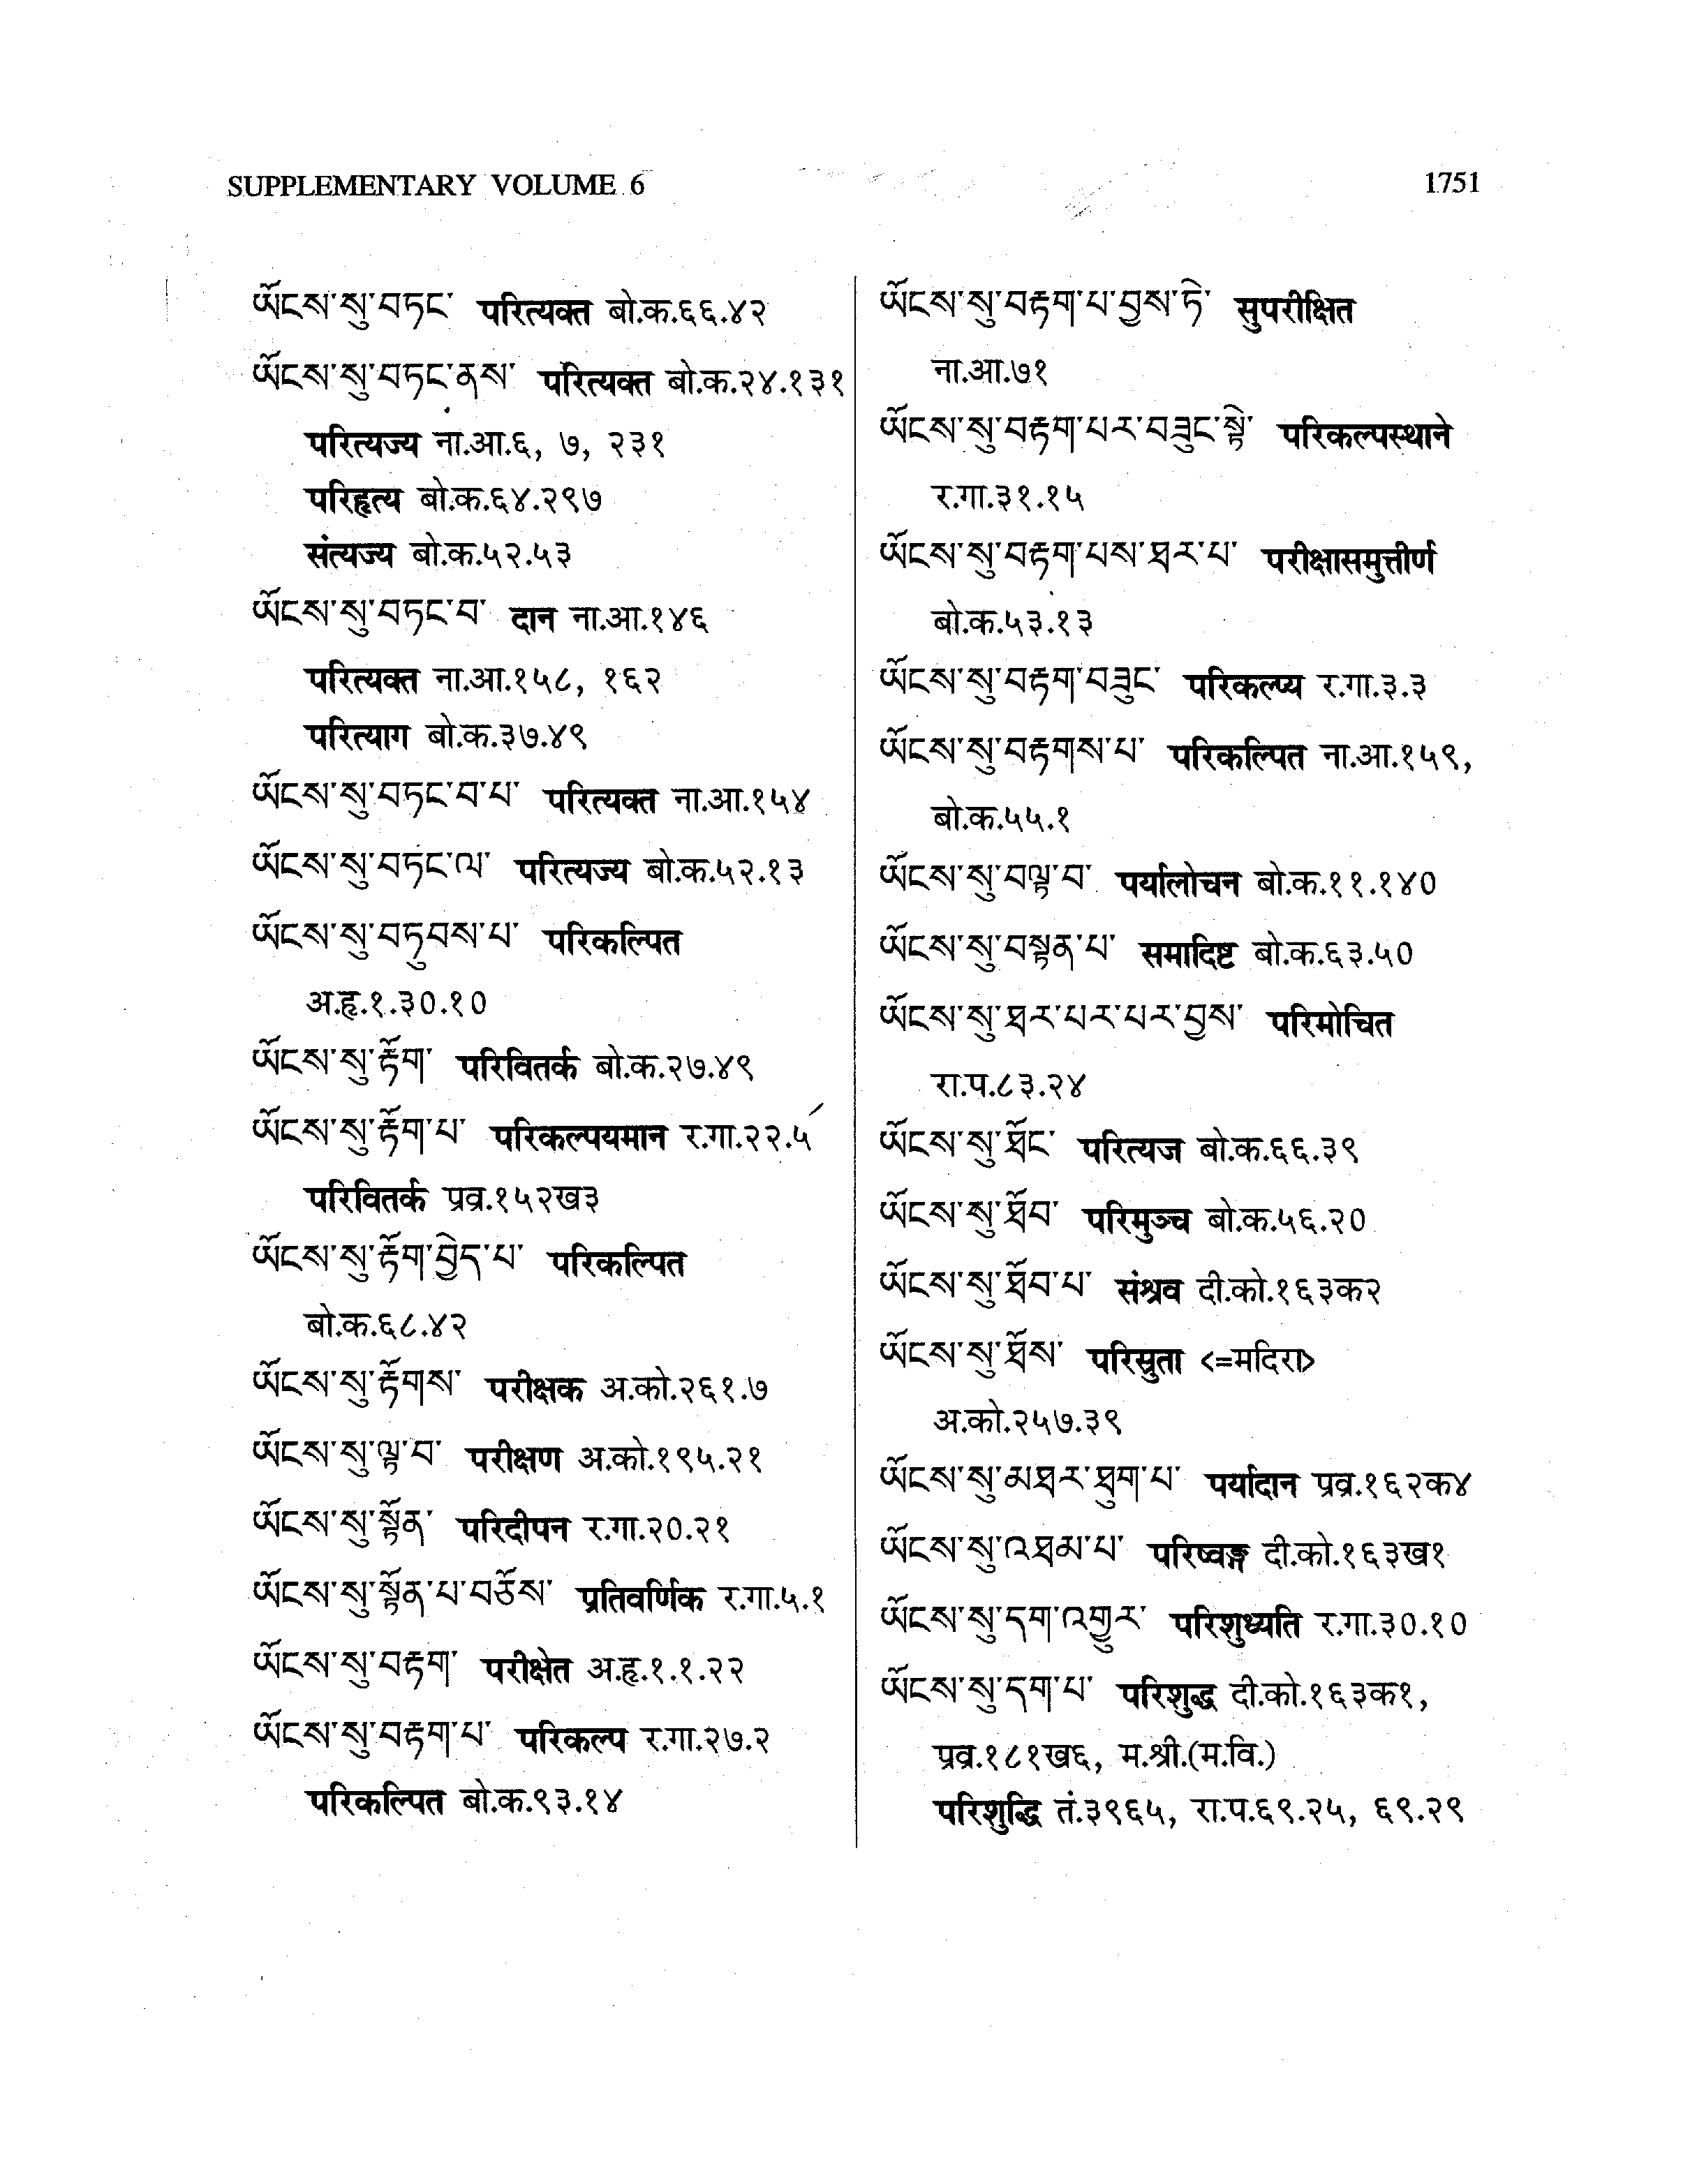 SUPPLEMENTARY VOLUME 6
1751
ཡོངས་སུ་བཏང་ परित्यक्त बो.क.६६.४२
ཡོངས་སུ་བཏང་ནས་ परित्यक्त बो.क.२४.१३१
परित्यज्य ना.आ.६, ७, २३१
परिहृत्य बो.क.६४.२९७
संत्यज्य बो.क.५२.५३
ཡོངས་སུ་བཏང་བ་ दान ना.आ.१४६
परित्यक्त ना.आ.१५८, १६२
परित्याग बो.क.३७.४९
ཡོངས་སུ་བཏང་བ་པ་ परित्यक्त ना.आ.१५४
ཡོངས་སུ་བཏང་ལ་ परित्यज्य बो.क.५२.१३
ཡོངས་སུ་བཏུབས་པ་ परिकल्पित
अ.हृ.१.३०.१०
ཡོངས་སུ་རྟོག་ परिवितर्क बो.क.२७.४९
ཡོངས་སུ་རྟོག་པ་ परिकल्पयमान र.गा.२२.५
परिवितर्क प्रव्र.१५२ख३
ཡོངས་སུ་རྟོག་བྱེད་པ་ परिकल्पित
बो.क.६८.४२
ཡོངས་སུ་རྟོགས་ परीक्षक अ.को.२६१.७
ཡོངས་སུ་ལྟ་བ་ परीक्षण अ.को.१९५.२१
ཡོངས་སུ་སྟོན་ परिदीपन र.गा.२०.२१
ཡོངས་སུ་སྟོན་པ་བཅོས་ प्रतिवर्णिक र.गा.५.१
ཡོངས་སུ་བརྟག་ परीक्षेत अ.हृ.१.१.२२
ཡོངས་སུ་བརྟག་པ་ परिकल्प र.गा.२७.२
परिकल्पित बो.क.९३.१४
ཡོངས་སུ་བརྟག་པ་བྱས་ཏེ་ सुपरीक्षित
ना.आ.७१
ཡོངས་སུ་བརྟག་པར་བཟུང་སྟེ་ परिकल्पस्थाने
र.गा.३१.१५
ཡོངས་སུ་བརྟག་པས་ཐར་པ་ परीक्षासमुत्तीर्ण
बो.क.५३.१३
ཡོངས་སུ་བརྟག་བཟུང་ परिकल्प्य र.गा.३.३
ཡོངས་སུ་བརྟགས་པ་ परिकल्पित ना.आ.१५९,
बो.क.५५.१
ཡོངས་སུ་བལྟ་བ་ पर्यालोचन बो.क.११.१४०
ཡོངས་སུ་བསྟན་པ་ समादिष्ट बो.क.६३.५०
ཡོངས་སུ་ཐར་པར་པར་བྱས་ परिमोचित
रा.प.८३.२४
ཡོངས་སུ་ཐོང་ परित्यज बो.क.६६.३९
ཡོངས་སུ་ཐོབ་ परिमुञ्च बो.क.५६.२०
ཡོངས་སུ་ཐོབ་པ་ संश्रव दी.को.१६३क२
ཡོངས་སུ་ཐོས་ परिस्रुता <=मदिरा>
अ.को.२५७.३९
ཡོངས་སུ་མཐར་ཐུག་པ་ पर्यादान प्रव्र.१६२क४
ཡོངས་སུ་འཐམ་པ་ परिष्वङ्ग दी.को.१६३ख१
ཡོངས་སུ་དག་འགྱུར་ परिशुध्यति र.गा.३०.१०
ཡོངས་སུ་དག་པ་ परिशुद्ध दी.को.१६३क१,
प्रव्र.१८१ख६, म.श्री.(म.वि.)
परिशुद्धि तं.३९६५, रा.प.६९.२५, ६९.२९